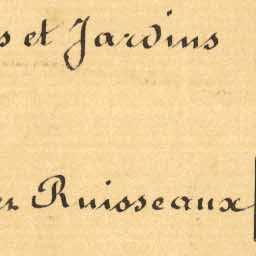 s et Jardins
Ruisseaux